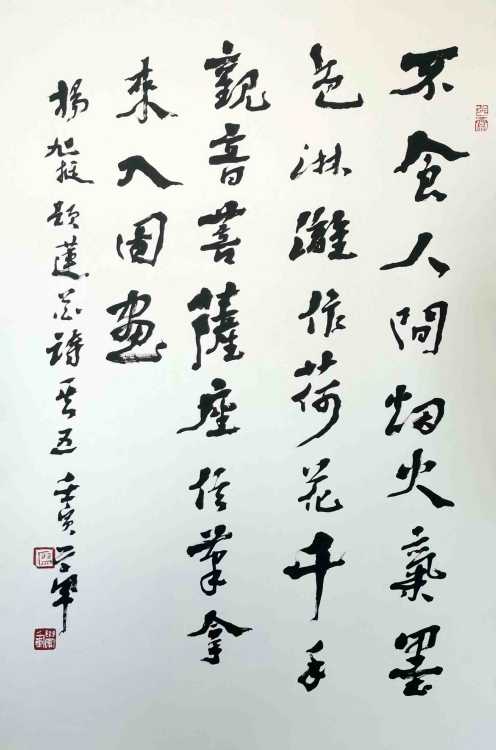 不食人間烟火氣墨
色淋灕作荷花千手
觀音菩薩座信筆拿
來入圖畫
楊旭挺題蓮花詩其五 壬寅